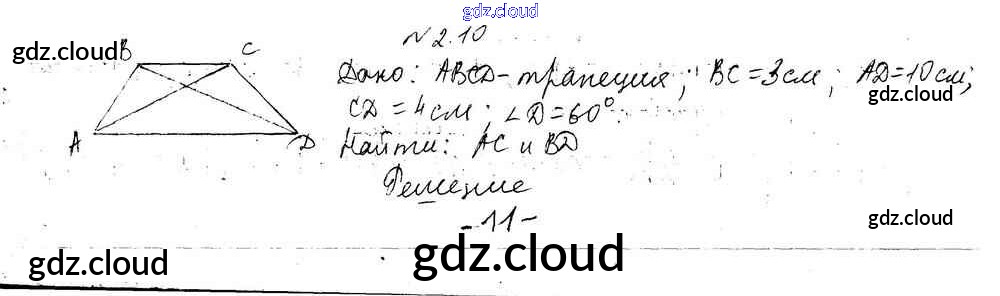 gdz.cloud
№2.10
gdz.cloud B C
Дано: ABCD - трапеция; BC = 3 см; AD = 10 см;
gdz.cloud
CD = 4 см; ∠D = 60°.
A D Найти: AC и BD
Решение
-11-
gdz.cloud
gdz.cloud
gdz.cloud